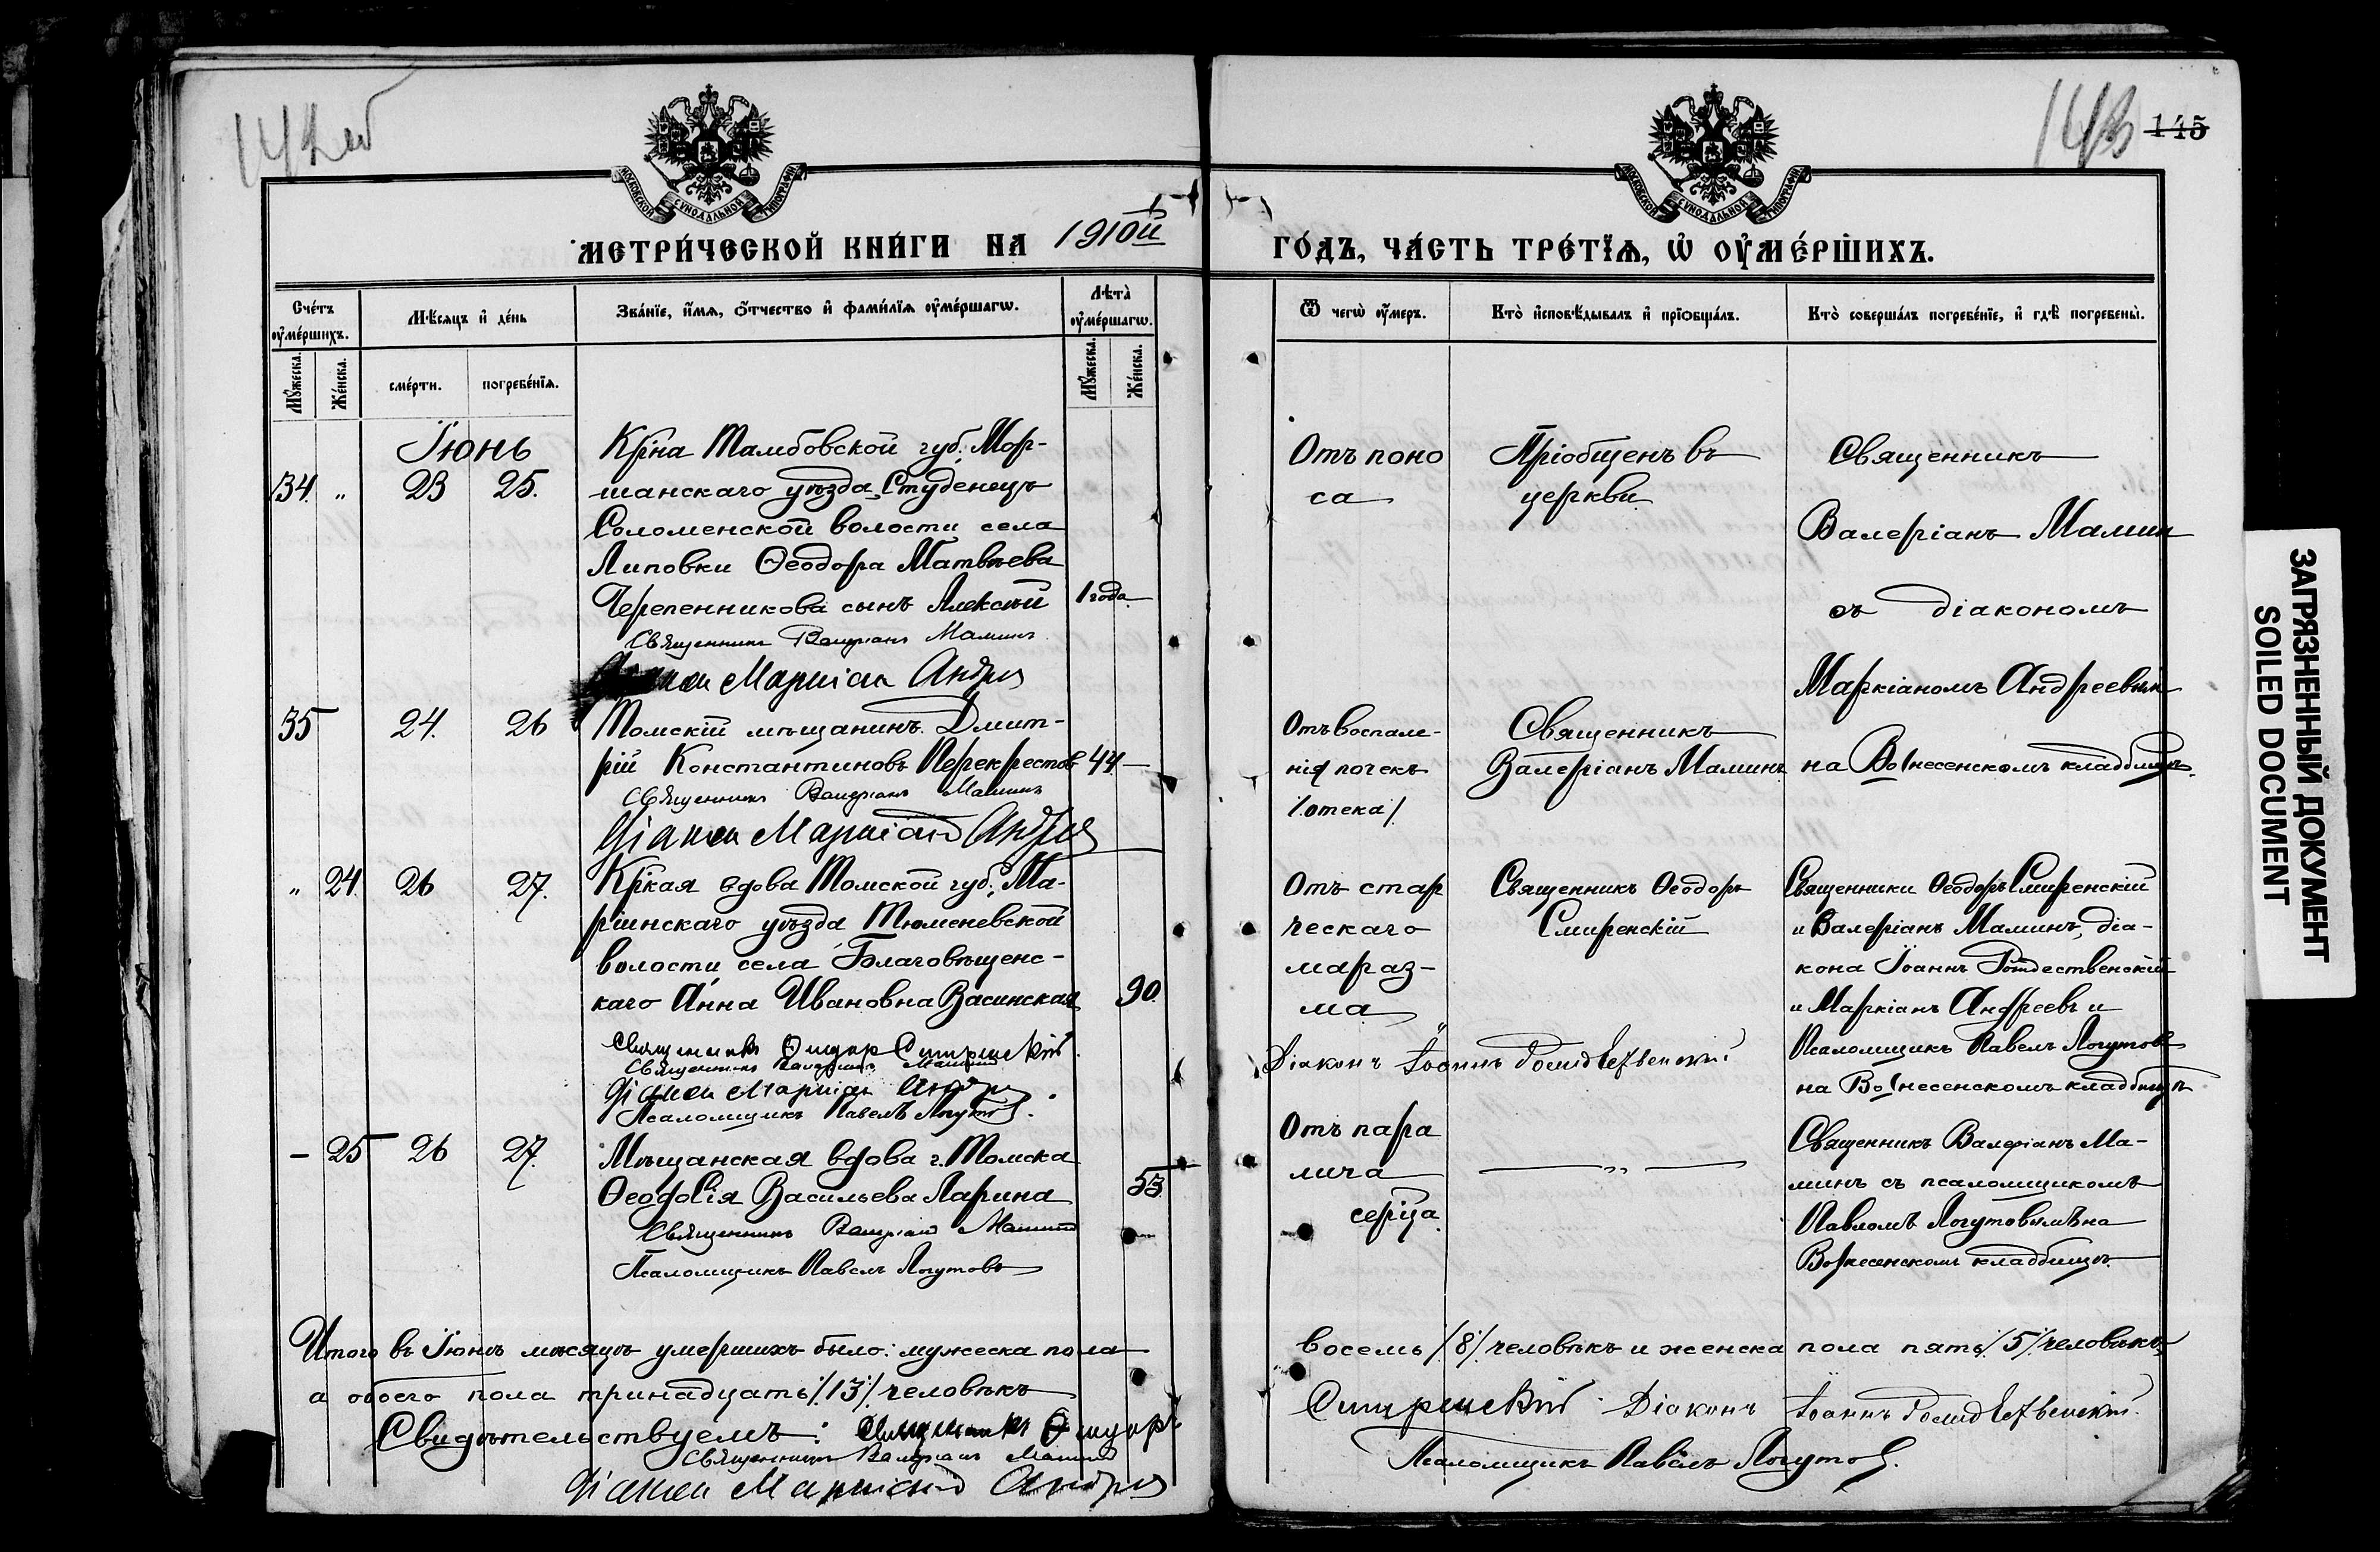 142об
143 145
МОСКОВСКОЙ СѴНОДАЛЬНОЙ ТИПОГРАФІИ
МОСКОВСКОЙ СѴНОДАЛЬНОЙ ТИПОГРАФІИ
МЕТРИ́ЧЕСКОЙ КНИ́ГИ НА 1910й
ГО́ДЪ, ЧА́СТЬ ТРЕ́ТЇѦ, Ѡ҆ ОУ҆МЕ́РШИХЪ.
Сче́тъ оу҆ме́ршихъ.
Мꙋ́жеска. Же́нска.
Мѣ́сѧцъ и҆ де́нь
сме́рти. погребе́нїѧ.
Зва́нїе, и҆́мѧ, ѻ҆́тчество и҆ фами́лїѧ оу҆ме́ршагѡ.
Лѣ́та оу҆ме́ршагѡ.
Мꙋ́жеска. Же́нска.
Ѿ чегѡ̀ оу҆́меръ.
Кто̀ и҆сповѣ́дывалъ и҆ прїѻбща́лъ.
Кто̀ соверша́лъ погребе́нїе, и҆ гдѣ̀ погребены̀.
Іюнь
34 „ 23 25.
Кр̃на Тамбовской губ. Мор-
шанскаго уѣзда Студенецъ
Соломенской волости села
Липовки Ѳеодора Матвѣева
Черепенникова сынъ Алексѣй 1 года
Священникъ Валеріанъ Маминъ
Діаконъ Маркіанъ Андреев
Отъ поно
са
Пріобщенъ въ
церкви
Священникъ
Валеріанъ Мамин
съ діакономъ
Маркіаномъ Андреевым
на Вознесенскомъ кладбищѣ.
35 24. 26
Томскій мѣщанинъ Дмит-
рій Константиновъ Перекрестов 44
Священникъ Валеріанъ Маминъ
Діаконъ Маркіанъ Андреев
Отъ воспале-
нія почекъ
/отека/
Священникъ
Валеріанъ Маминъ
„ 24. 26 27.
Кр̃кая вдова Томской губ. Ма-
ріинскаго уѣзда Тюменевской
волости села Благовѣщенс-
каго Анна Ивановна Васинская 90.
Священникъ Ѳеодоръ Смиренскій
Священникъ Валеріанъ Маминъ
Діаконъ Маркіанъ Андреев
Псаломщикъ Павелъ Логутов.
Отъ стар
ческаго
мараз-
ма
Діаконъ Іоаннъ Рождественскій
Священникъ Ѳеодоръ
Смиренскій
Священники Ѳеодоръ Смиренскій
и Валеріанъ Маминъ, діа-
кона Іоаннъ Рождественскій
и Маркіанъ Андреевъ и
Псаломщикъ Павелъ Логутовъ
на Вознесенскомъ кладбищѣ
– 25 26 27.
Мѣщанская вдова г. Томска
Ѳеодосія Васильева Ларина 53.
Священникъ Валеріанъ Маминъ
Псаломщикъ Павелъ Логутовъ
Отъ пара
лича
сердца
— „ —
Священникъ Валеріанъ Ма-
минъ съ псаломщикомъ
Павломъ Логутовымъ на
Вознесенскомъ кладбищѣ.
Итого въ Іюнѣ мѣсяцѣ умершихъ было: мужеска пола восемь /8/ человѣкъ и женска пола пять /5/ человѣкъ,
а обоего пола тринадцать /13/ человѣкъ
Свидѣтельствуемъ: Священникъ Ѳеодоръ Смиренскій Діаконъ Іоаннъ Рождественскій.
Священникъ Валеріанъ Маминъ Псаломщикъ Павелъ Логутов.
Діаконъ Маркіанъ Андреев
ЗАГРЯЗНЕННЫЙ ДОКУМЕНТ
SOILED DOCUMENT